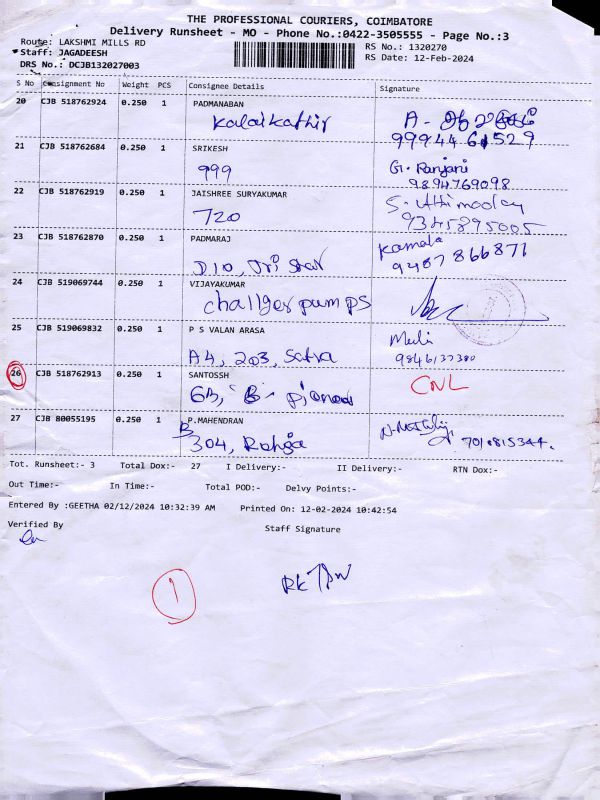 THE PROFESSIONAL COURIERS, COIMBATORE
Delivery Runsheet - MO - Phone No.:0422-3505555 - Page No.:3
Route: LAKSHMI MILLS RD
RS No.: 1320270
Staff: JAGADEESH
RS Date: 12-Feb-2024
DRS No.: DCJB132027003
S No Consignment No Weight PCS Consignee Details Signature
20 CJB 518762924 0.250 1 PADMANABAN
Kalaikathir
99944 61529
21 CJB 518762684 0.250 1 SRIKESH
999
G. Ranjani
9894769098
22 CJB 518762919 0.250 1 JAISHREE SURYAKUMAR
720
9345895005
23 CJB 518762870 0.250 1 PADMARAJ
D10, Tri Star
Kamala
9487 866871
24 CJB 519069744 0.250 1 VIJAYAKUMAR
challger pumps
25 CJB 519069832 0.250 1 P S VALAN ARASA
A4, 203, Satva
9846137380
26 CJB 518762913 0.250 1 SANTOSSH
CNL
27 CJB 80055195 0.250 1 P.MAHENDRAN
B
304, Rohga
7010815344.
Tot. Runsheet:- 3 Total Dox:- 27 I Delivery:- II Delivery:- RTN Dox:-
Out Time:- In Time:- Total POD:- Delvy Points:-
Entered By :GEETHA 02/12/2024 10:32:39 AM Printed On: 12-02-2024 10:42:54
Verified By
Staff Signature
1